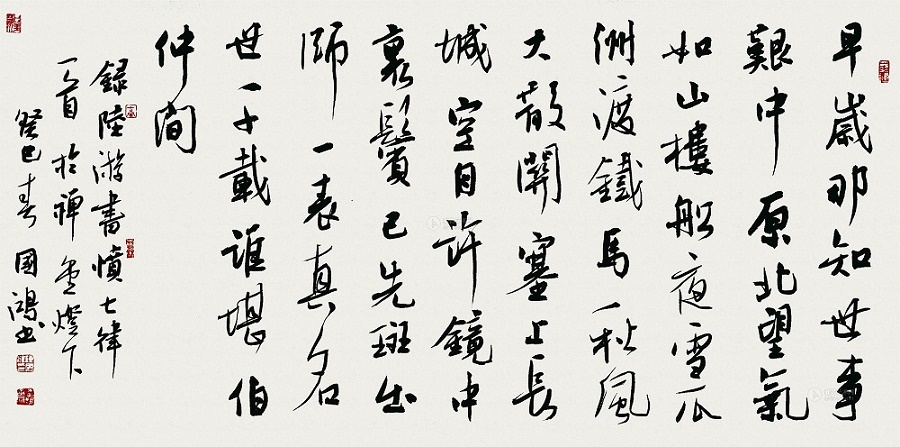 早歲那知世事
艱中原北望氣
如山樓船夜雪瓜
洲渡鐵馬秋風
大散關塞上長
城空自許鏡中
衰鬢已先斑出
師一表真名
世千載誰堪伯
仲間
録陸游書憤七律
一首於禪燈下
癸巳春國鴻書